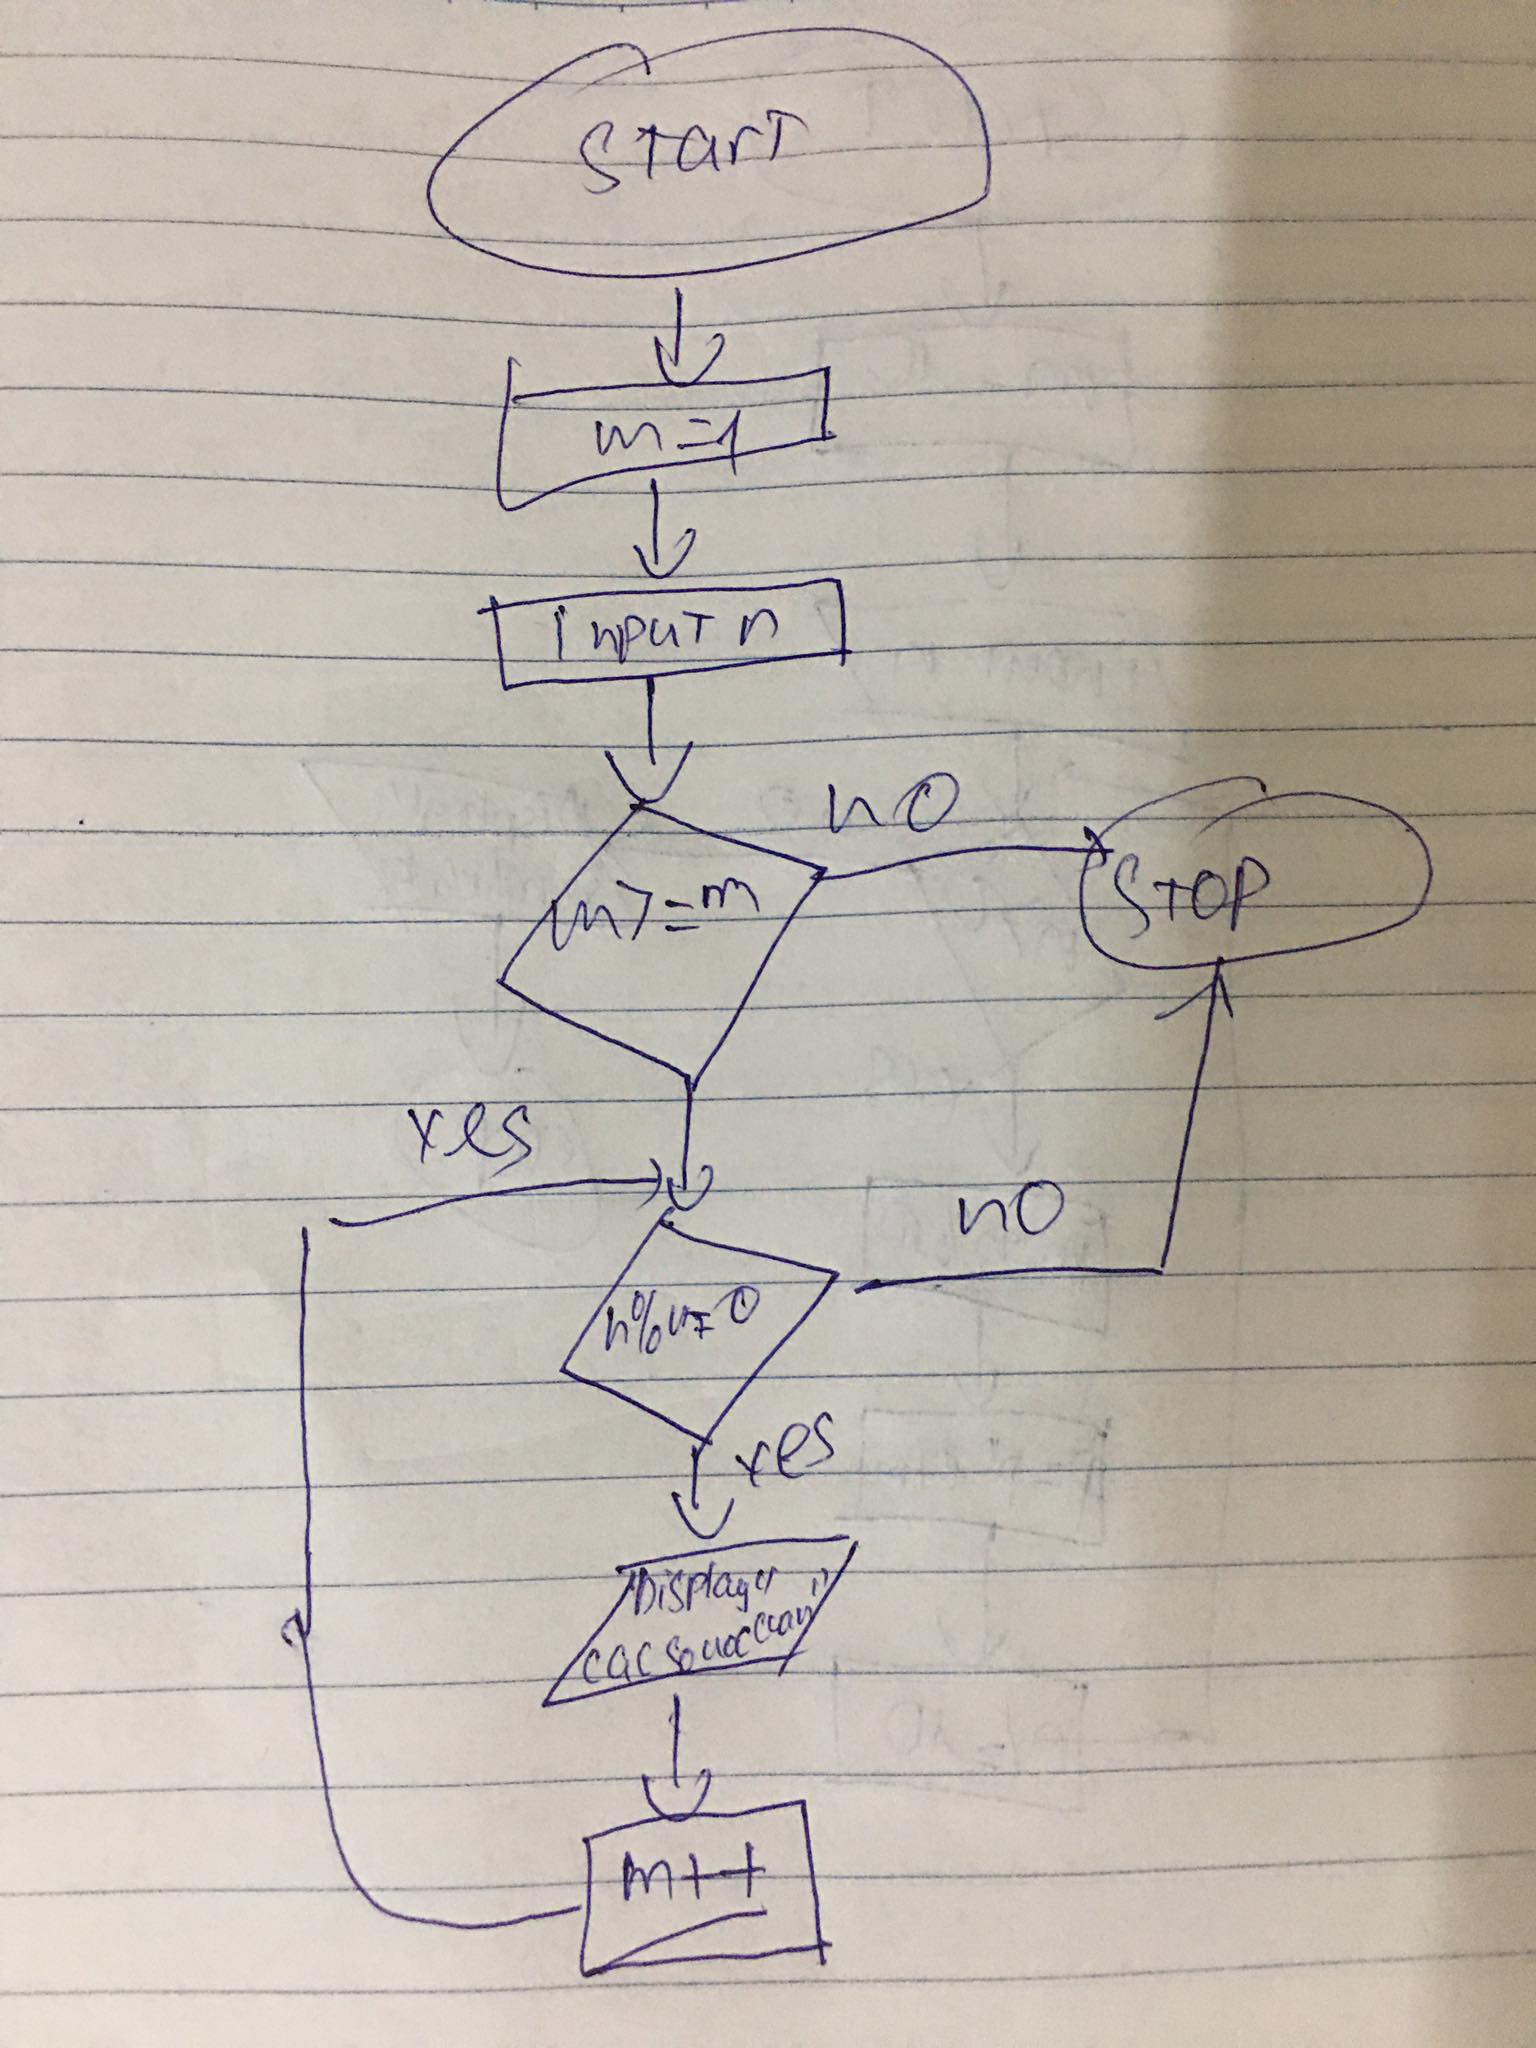 START
m=1
input n
no
m>=m
STOP
yes
no
n%m=0
yes
Display"
cac so uoc
m++